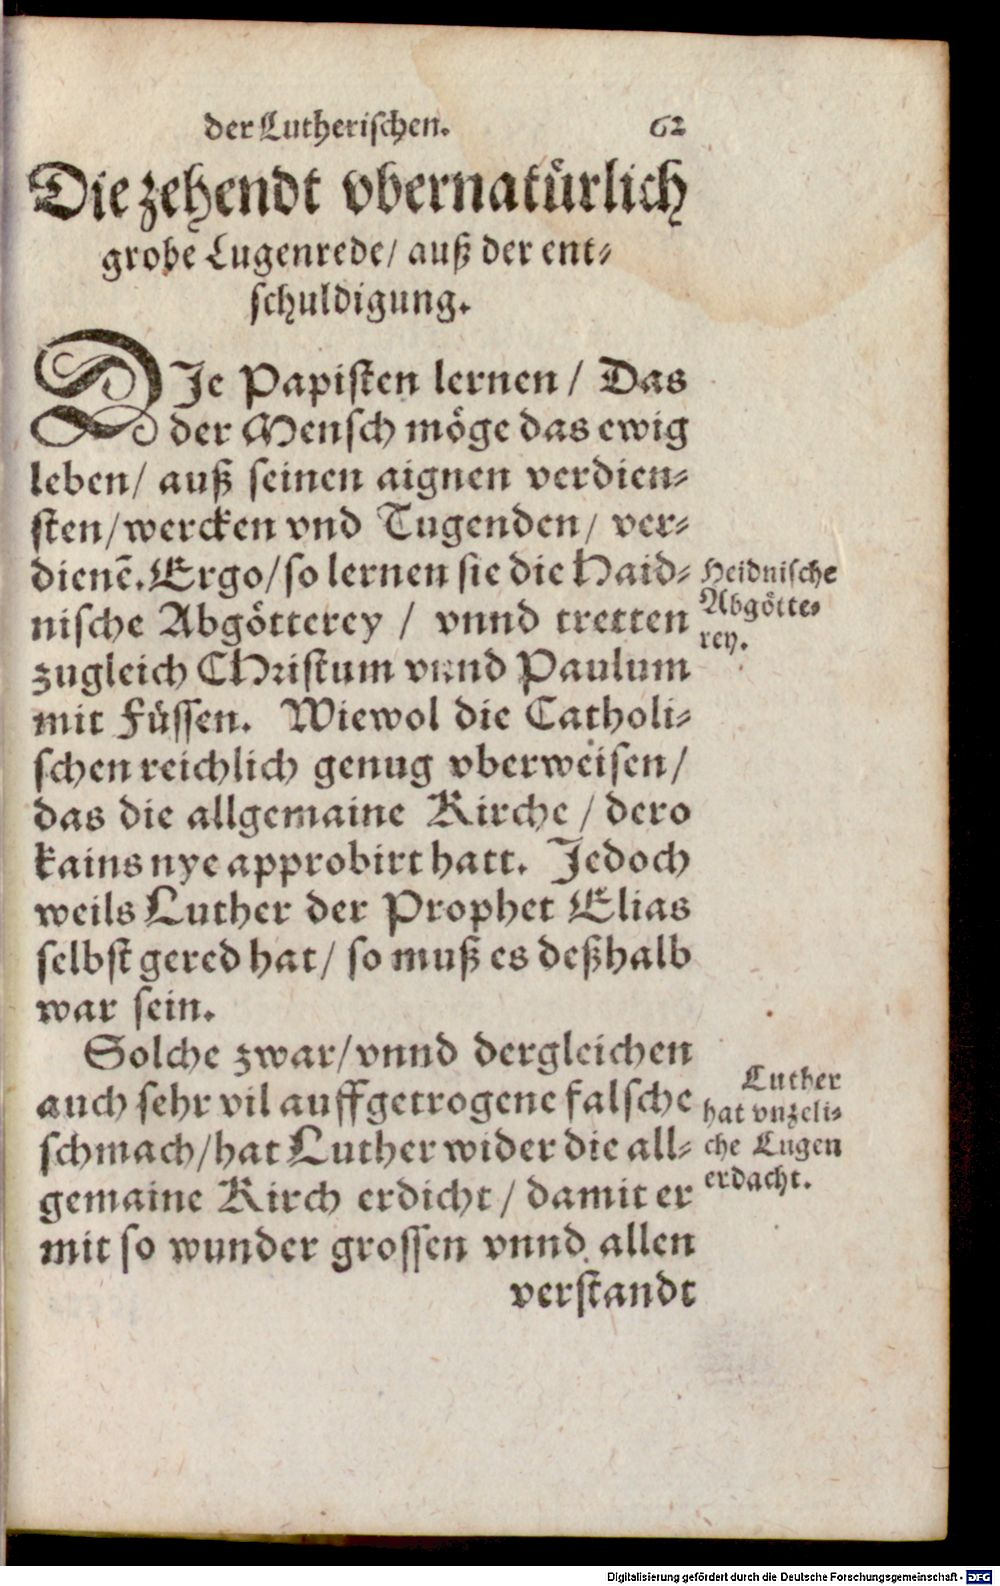 der Lutherischen. 62
Die zehendt vbernatürlich
grobe Lugenrede/ auß der ent-
schuldigung.
DIe Papisten lernen / Das
der Mensch möge das ewig
leben/ auß seinen aignen verdien-
sten/wercken vnd Tugenden/ ver-
dienẽ. Ergo/so lernen sie die Haid-
nische Abgötterey / vnnd tretten
zugleich CHristum vnnd Paulum
mit Füssen. Wiewol die Catholi-
schen reichlich genug vberweisen/
das die allgemaine Kirche / dero
kains nye approbirt hatt. Jedoch
weils Luther der Prophet Elias
selbst gered hat/ so muß es deßhalb
war sein.
Heidnische
Abgötte-
rey.
Solche zwar/vnnd dergleichen
auch sehr vil auffgetrogene falsche
schmach/hat Luther wider die all-
gemaine Kirch erdicht / damit er
mit so wunder grossen vnnd allen
verstandt
Luther
hat vnzeli-
che Lugen
erdacht.
Digitalisierung gefördert durch die Deutsche Forschungsgemeinschaft - DFG